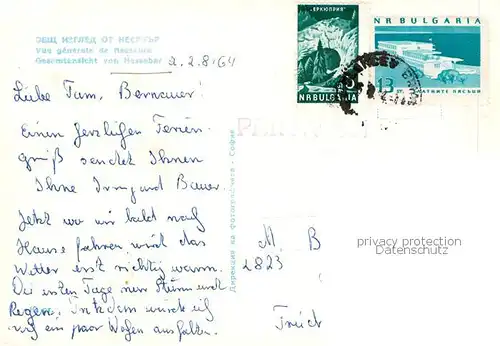 ОБЩ ИЗГЛЕД ОТ НЕСЕБЪР
Vue générale de Nessebre
Gesamtansicht von Nessebar
д. 2.8.64
"ЕРКЮПРИЯ"
NR BULGARIA
NR BULGARIA
13
Liebe Fam. Bernauer!
Einen herzlichen Ferien-
gruß sendet Ihnen
Ihre Irmgard Bauer.
Jetzt wo wir bald nach
Hause fahren wird das
Wetter erst richtig warm.
Die ersten Tage nur Sturm und
Regen. Trotzdem würde ich
noch ein paar Wochen aushalten.
Дирекция на Фотографиката - София
M. B
2823
privacy protection
Datenschutz